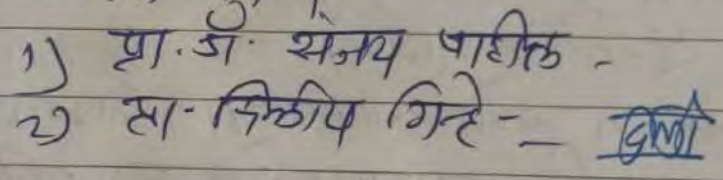 1) प्रा. डॉ. संजय पाटील -
2) प्रा - दिलीप गिऱ्हे -